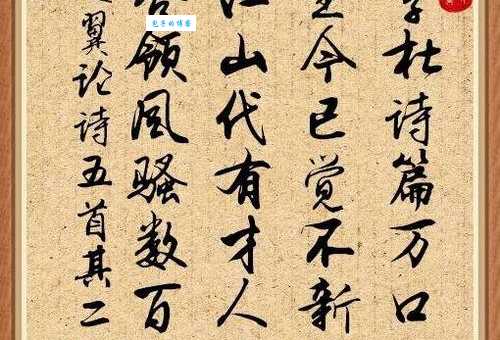 李杜诗篇万口
至今已觉不新
江山代有才人
各领风骚数百
翼论诗五首其二